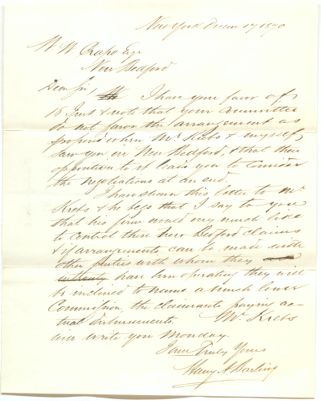 New York Decem 17 1870
W W Crapo Esqr
New Bedford
Dear Sir, I have your favor of
15 Inst & note that your committee
do not favor the arrangement as
proposed when Mr Krebs & myself
saw you in New Bedford, & that their
opposition to it leads you to consider
the negotiations at an end
I have shown this letter to Mr
Krebs & he begs that I say to you
that his firm would very much like
to control these New Bedford claims
& if arrangements can be made with
other parties with whom they
have been operating they will
be inclined to name a much lower
Commission, the claimants paying ac-
tual disbursements Mr Krebs
will write you Monday
Yours Truly Yours
Henry A Darling